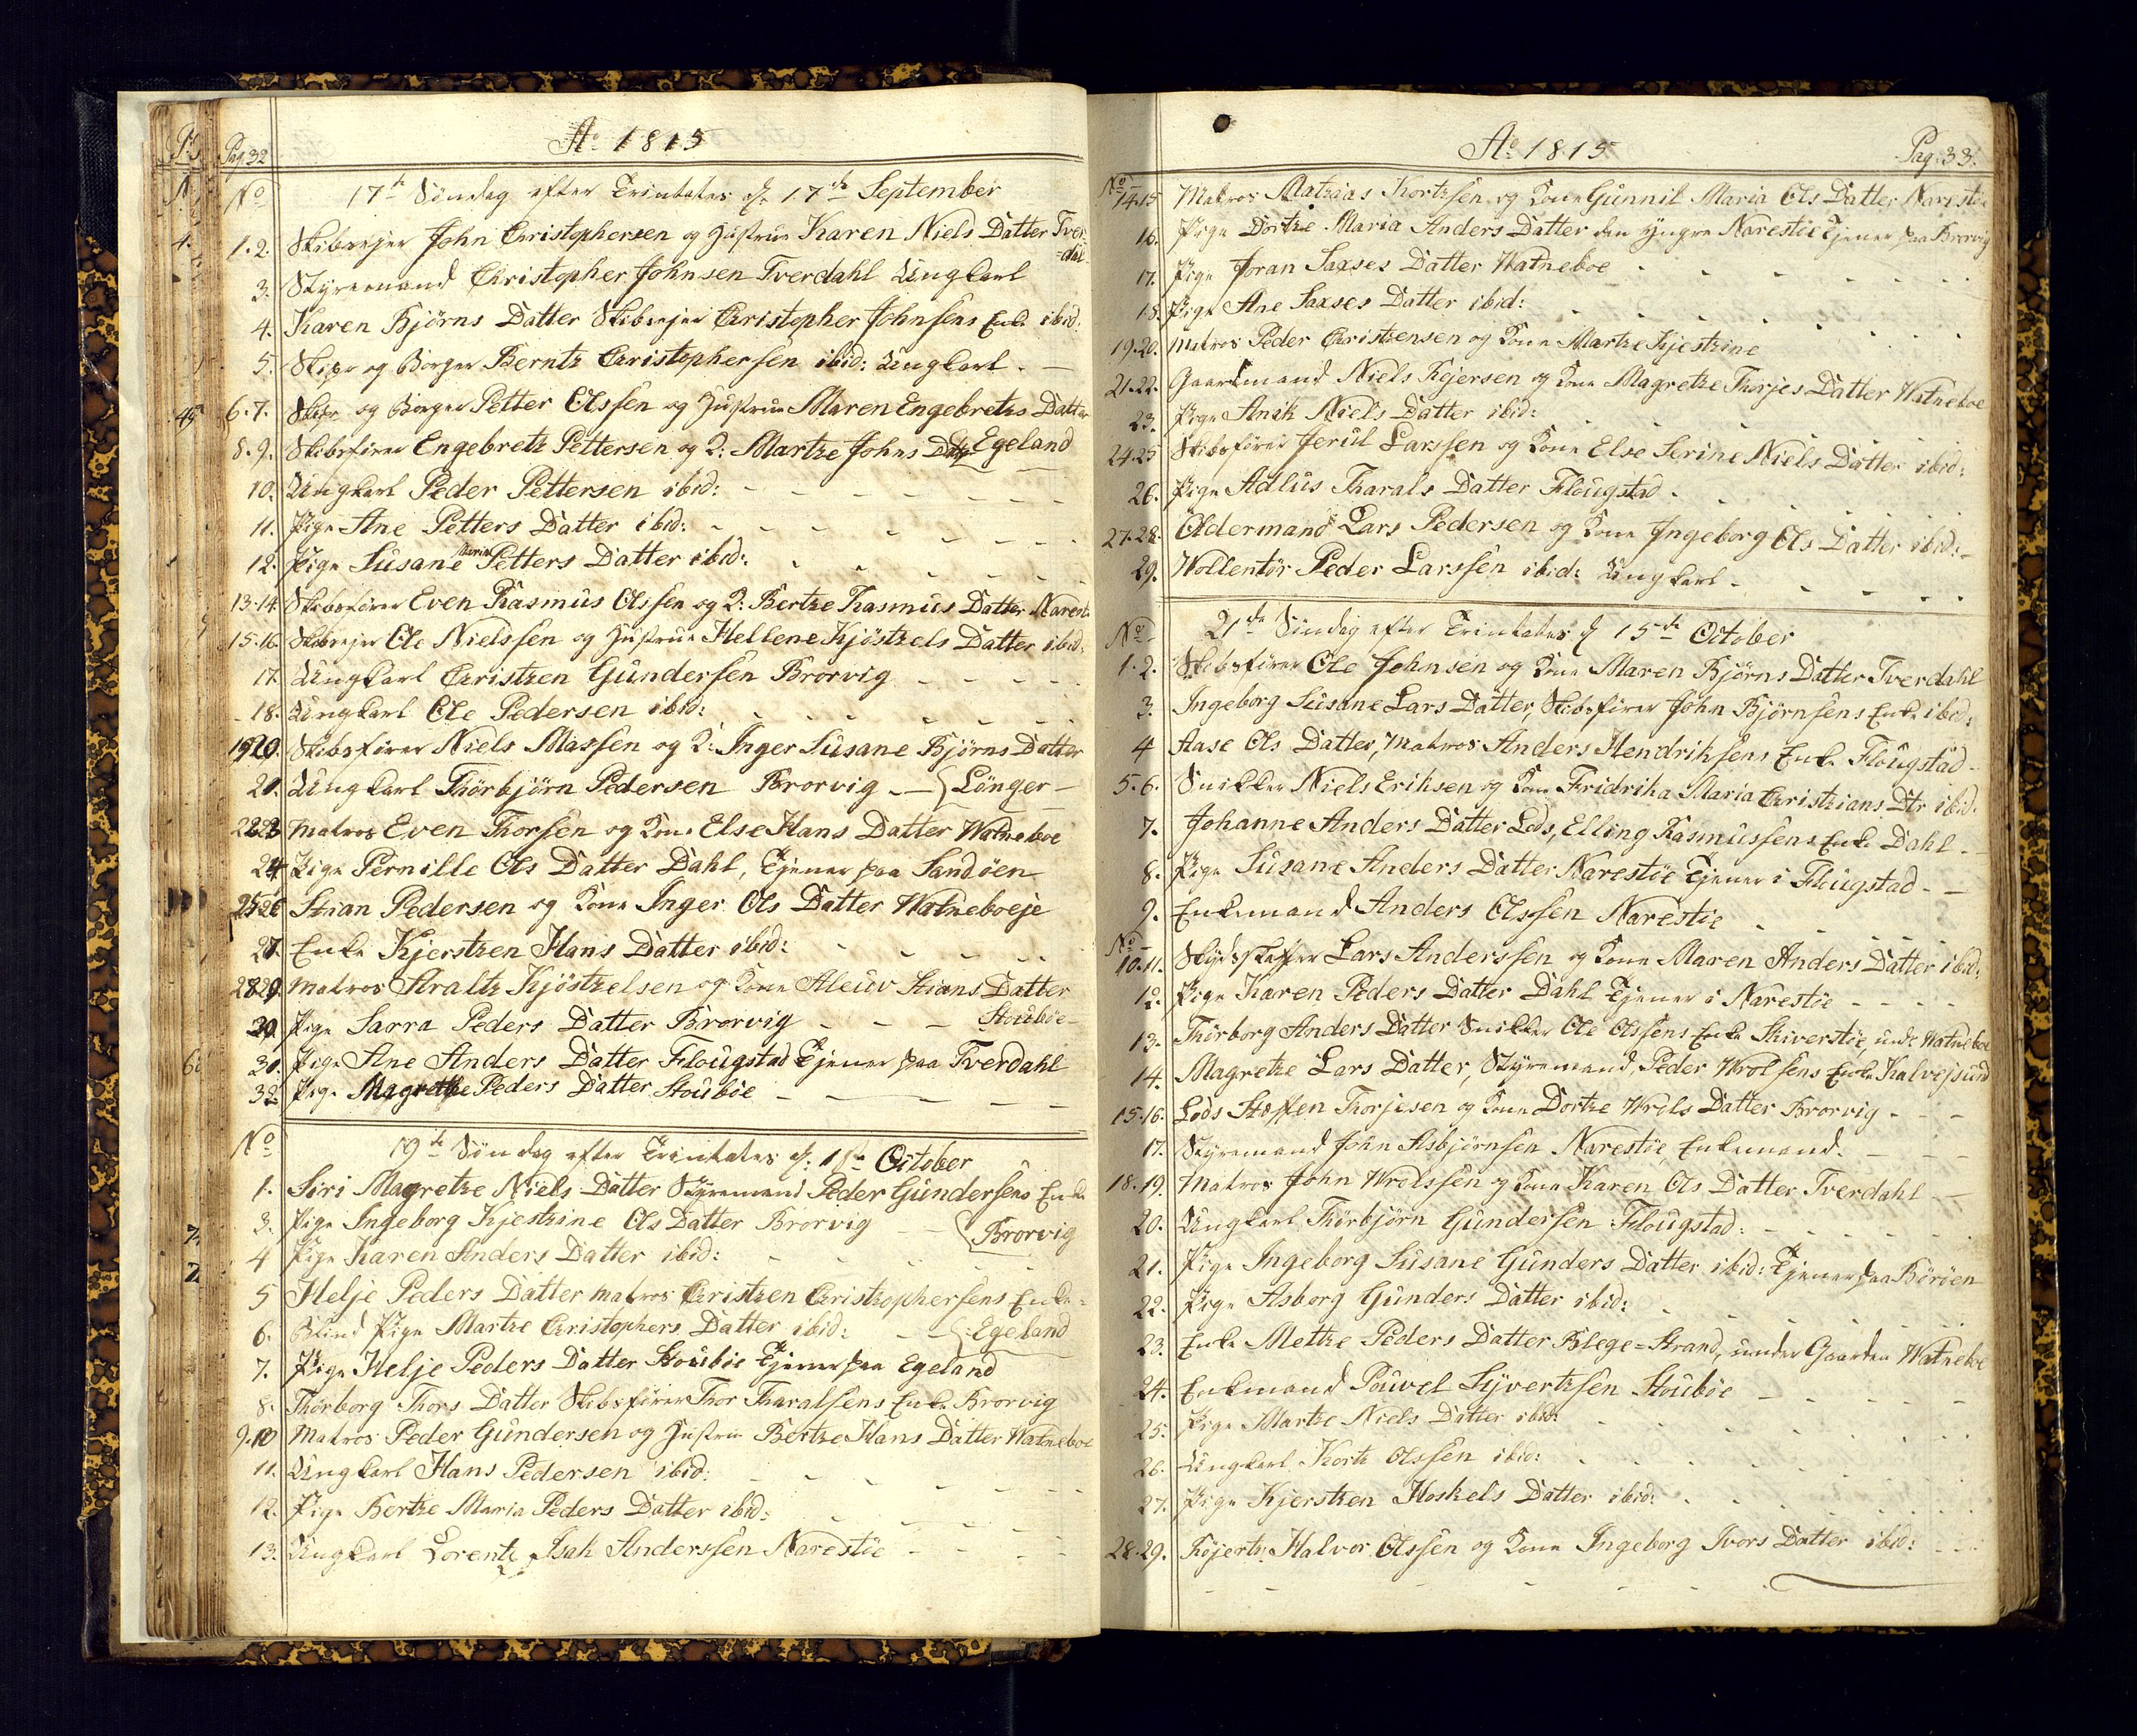 Pag. 32
Ao 1815
No 17de Søndag efter Trinitates d. 17de September
1.2. Skibsejer John Christophersen og Hustrue Karen Niels Datter Tver-
-dal
3. Styremand Christopher Johnsen Tverdahl Ungkarl
4. Karen Bjørns Datter Skibsejer Christopher Johnsens Enke ibid:
5. Skipr og Borger Berntz Christophersen ibid: Ungkarl. —
6.7. Skipr og Borger Petter Olssen og Hustrue Maren Engebretzs Datter
8.9. Skibsfører Engebretz Pettersen og K: Martze Johns Datr Egeland
10. Ungkarl Peder Pettersen ibid:
11. Pige Ane Petters Datter ibid:
12. Pige Susane Maria Petters Datter ibid:
13.14. Skibsfører Even Rasmus Olssen og K: Bertze Rasmus Datter Narestø
15.16. Skibsejer Ole Nielssen og Hustrue Hellene Kjöstzels Datter ibid:
17. Ungkarl Christzen Gundersen Brorvig
18. Ungkarl Ole Pedersen ibid:
19.20. Skibsfører Niels Massen og K: Inger Susane Bjørns Datter
21. Ungkarl Thörbjörn Pedersen Brorvig — Lönger —
22.23 Matros Even Thorsen og Kone Else Hans Datter Watneboe
24 Pige Pernille Ols Datter Dahl, Tjener paa Sandöen
25.26 Stian Pedersen og Kone Inger Ols Datter Watneboeje
27. Enke Kjerstzen Hans Datter ibid:
28.29. Matros Araltz Kjöstzelsen og Kone Aleuv Stians Datter
Stouböe —
30. Pige Sarra Peders Datter Brorvig
31. Pige Ane Anders Datter Flougstad Tjener paa Tverdahl
32. Pige Magretze Peders Datter Stouböe
No 19de Søndag efter Trinitates d. 1ste October
1. Siri Magretze Niels Datter Styremand Peder Gundersens Enke
3. Pige Ingeborg Kjestzine Ols Datter Brorvig — Brorvig
4 Pige Karen Anders Datter ibid:
5 Helje Peders Datter Matros Christzen Christzophersens Enke
6. Blind Pige Martze Christophers Datter ibid: — Egeland
7. Pige Helje Peders Datter Stouböe Tjener paa Egeland
8. Thörborg Thors Datter Skibsfører Thor Tharalsens Enke Brorvig
9.10 Matros Peder Gundersen og Hustrue Bertze Hans Datter Watneboe
11. Ungkarl Hans Pedersen ibid:
12. Pige Bertze Maria Peders Datter ibid:
13. Ungkarl Lorentz Isak Anderssen Narestöe
Ao 1815 Pag: 33.
No 14.15 Matros Matzias Kortzsen og Kone Gunnil Maria Ols Datter Narestöe
16. Pige Dortze Maria Anders Datter den Yngre Narestöe Tjener paa Brorvig
17. Pige Joran Saxses Datter Watneboe
18. Pige Ane Saxses Datter ibid:
19.20. Matros Peder Christzensen og Kone Martze Kjestzine
21.22. Gaardmand Niels Rejersen og Kone Magretze Thorjes Datter Watneboe
23. Pige Anik Niels Datter ibid:
24.25 Skibsfører Jerul Larssen og Kone Else Serine Niels Datter ibid:
26. Pige Adlus Tharals Datter Flougstad.
27.28. Oldermand Lars Pedersen og Kone Ingeborg Ols Datter ibid:
29. Wollentör Peder Larssen ibid: Ungkarl
No 21de Søndag efter Trinitates d 15de October
1.2. Skibsfører Ole Johnsen og Kone Maren Bjørns Datter Tverdahl
3. Ingeborg Susane Lars Datter, Skibsfører John Bjørnsens Enke ibid:
4 Aase Ols Datter, Matros Anders Hendriksens Enke Flougstad
5.6. Snikker Niels Eriksen og Kone Fridrika Maria Christzians Dtr ibid:
7. Johanne Anders Datter Lods, Elling Rasmussens Enke Dahl
8. Pige Susane Anders Datter Narestöe Tjener i Flougstad
9. Enkemand Anders Olssen Narestöe
No 10.11. Skydsskaffer Lars Anderssen og Kone Maren Anders Datter ibid:
12. Pige Karen Peders Datter Dahl Tjener i Narestöe
13. Thörborg Anders Datter Snikker Ole Olssens Enke Skiverstöe, unde Watneboe
14. Magretze Lars Datter, Styremand, Peder Wrolsens Enke Kalvejsund
15.16. Lods Steffen Thorjesen og Kone Dortze Wrols Datter Brorvig
17. Styremand John Asbjörnsen Narestöe, Enkemand.
18.19. Matros John Wrolssen og Kone Karen Ols Datter Tverdahl
20. Ungkarl Thörbjörn Gundersen Flougstad:
21. Pige Ingeborg Susane Gunders Datter ibid: Tjener paa Böröen
22. Pige Asborg Gunders Datter ibid:
23. Enke Mettze Peders Datter Blege=Strand, under Gaarden Watneboe
24. Enkemand Pouvel Syvertzsen Stouböe
25. Pige Martze Niels Datter ibid:
26. Ungkarl Kortz Olssen ibid:
27. Pige Kjerstzen Hoskels Datter ibid:
28.29. Röjertz Halvor Olssen og Kone Ingeborg Ivors Datter ibid: